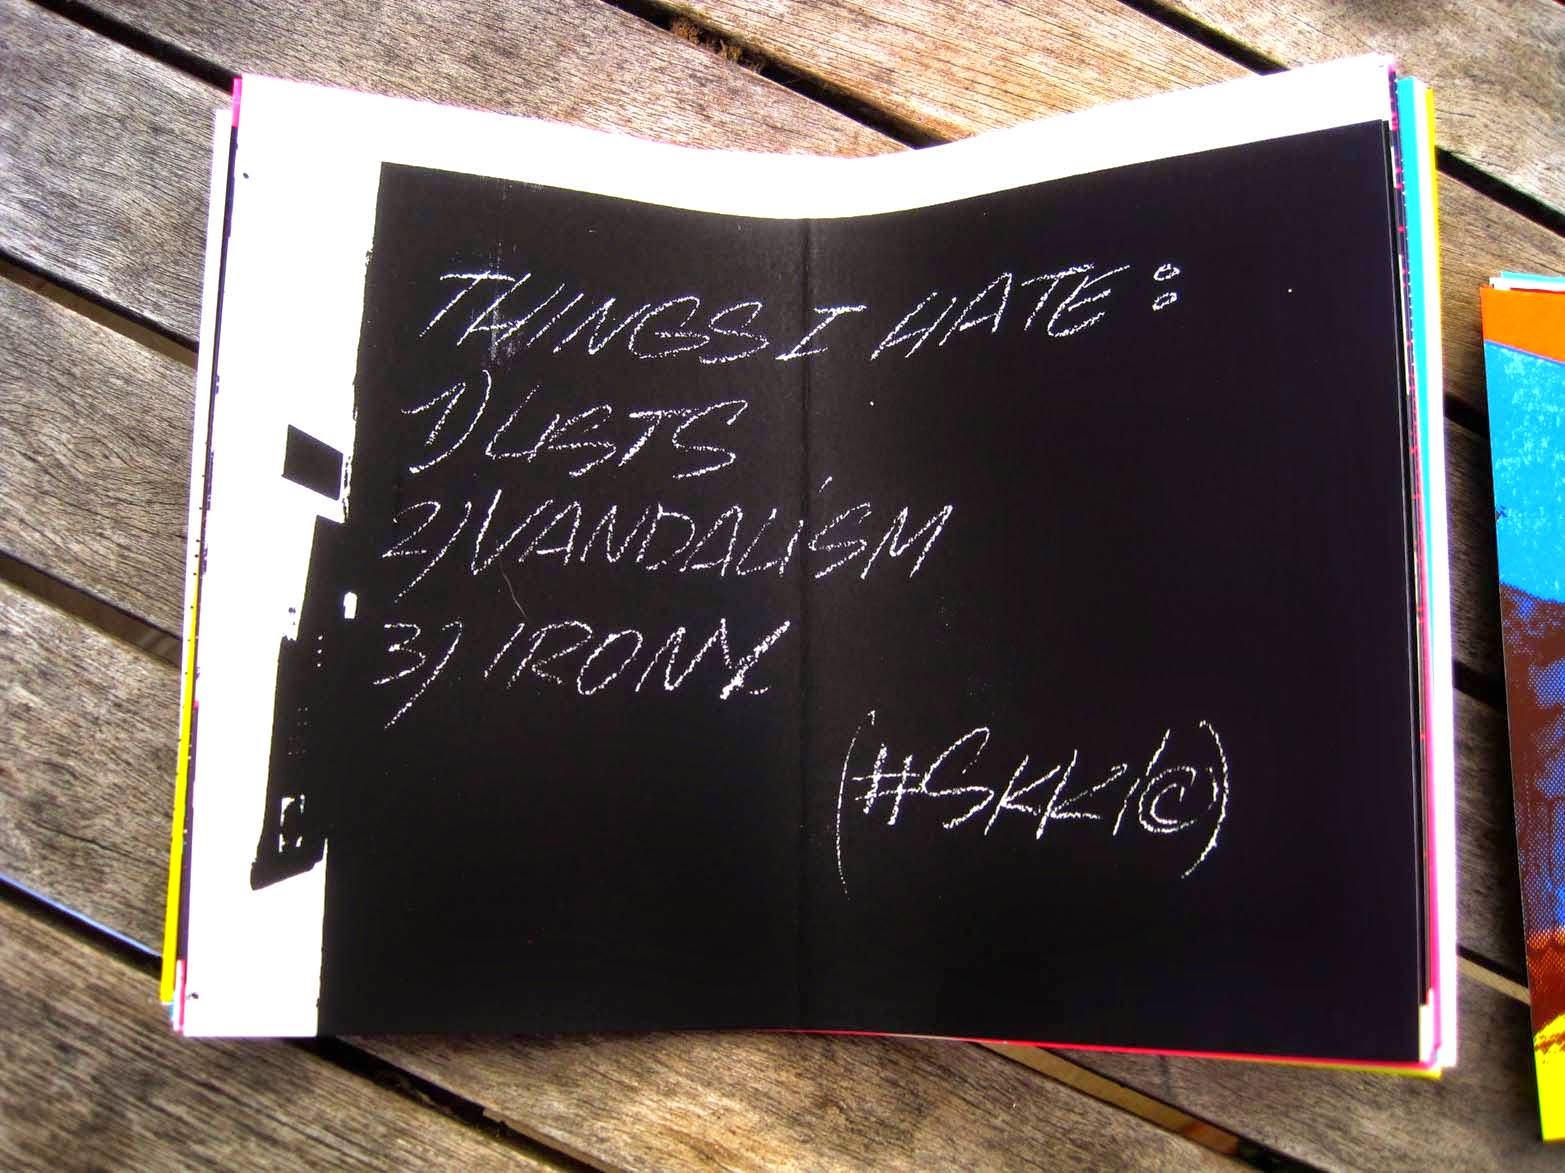 THINGS I HATE:
1) LISTS
2) VANDALISM
3) IRONY
(#SKKI©)